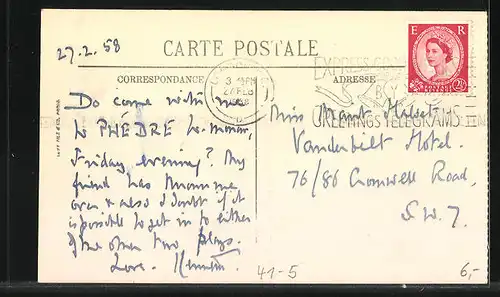 27.2.58
CARTE POSTALE
CORRESPONDANCE
ADRESSE
E R
2½
3 PM
27 FEB
1958
EXPRESS
GREETINGS TELEGRAMS
Do come with me
to PHÈDRE to-morrow,
Friday evening? My
friend has
over & also I doubt if it
is possible to get in to either
of the other two plays.
Love. Kenneth.
Miss
Vanderbilt Hotel.
76/86 Cromwell Road,
S.W.7.
41-5
6,-